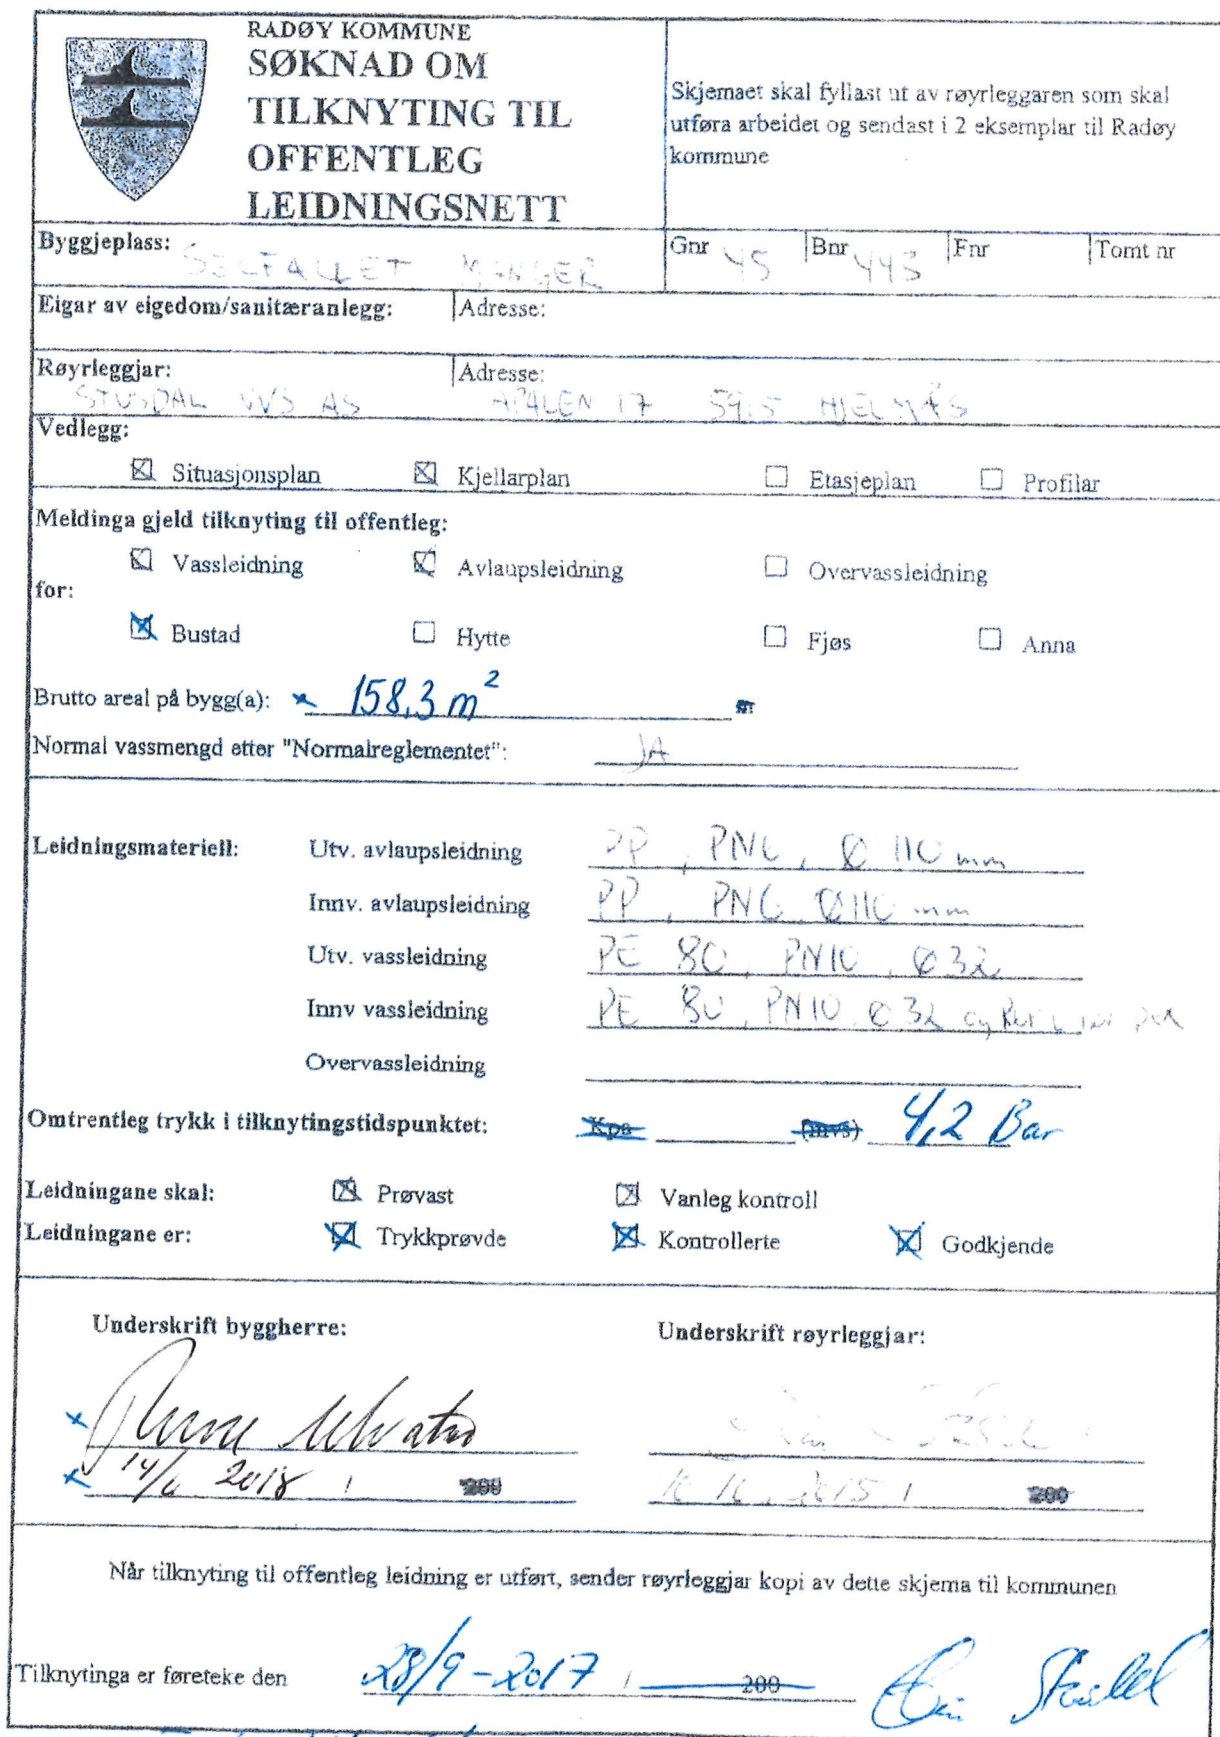 RADØY KOMMUNE
SØKNAD OM
TILKNYTING TIL
OFFENTLEG
LEIDNINGSNETT
Skjemaet skal fyllast ut av røyrleggaren som skal
utføra arbeidet og sendast i 2 eksemplar til Radøy
kommune
Byggjeplass: SELFALLET MANGER Gnr 45 Bnr 443 Fnr Tomt nr
Eigar av eigedom/sanitæranlegg: Adresse:
Røyrleggjar: Adresse:
STUSDAL VVS AS 17 5915 HJELMÅS
Vedlegg:
Situasjonsplan Kjellarplan Etasjeplan Profilar
Meldinga gjeld tilknyting til offentleg:
Vassleidning Avlaupsleidning Overvassleidning
for:
Bustad Hytte Fjøs Anna
Brutto areal på bygg(a): 158,3 m²
Normal vassmengd etter "Normalreglementet": JA
Leidningsmateriell: Utv. avlaupsleidning PP, PN6, Ø 110 mm
Innv. avlaupsleidning PP, PN6, Ø110 mm
Utv. vassleidning PE 80, PN10, Ø32
Innv vassleidning PE 80, PN10, Ø32 og
Overvassleidning
Omtrentleg trykk i tilknytingstidspunktet: Kpa (mvs) 4,2 Bar
Leidningane skal: Prøvast Vanleg kontroll
Leidningane er: Trykkprøvde Kontrollerte Godkjende
Underskrift byggherre: Underskrift røyrleggjar:
14/6 2018 / 200 200
Når tilknyting til offentleg leidning er utført, sender røyrleggjar kopi av dette skjema til kommunen
Tilknytinga er føreteke den 28/9-2017 / 200